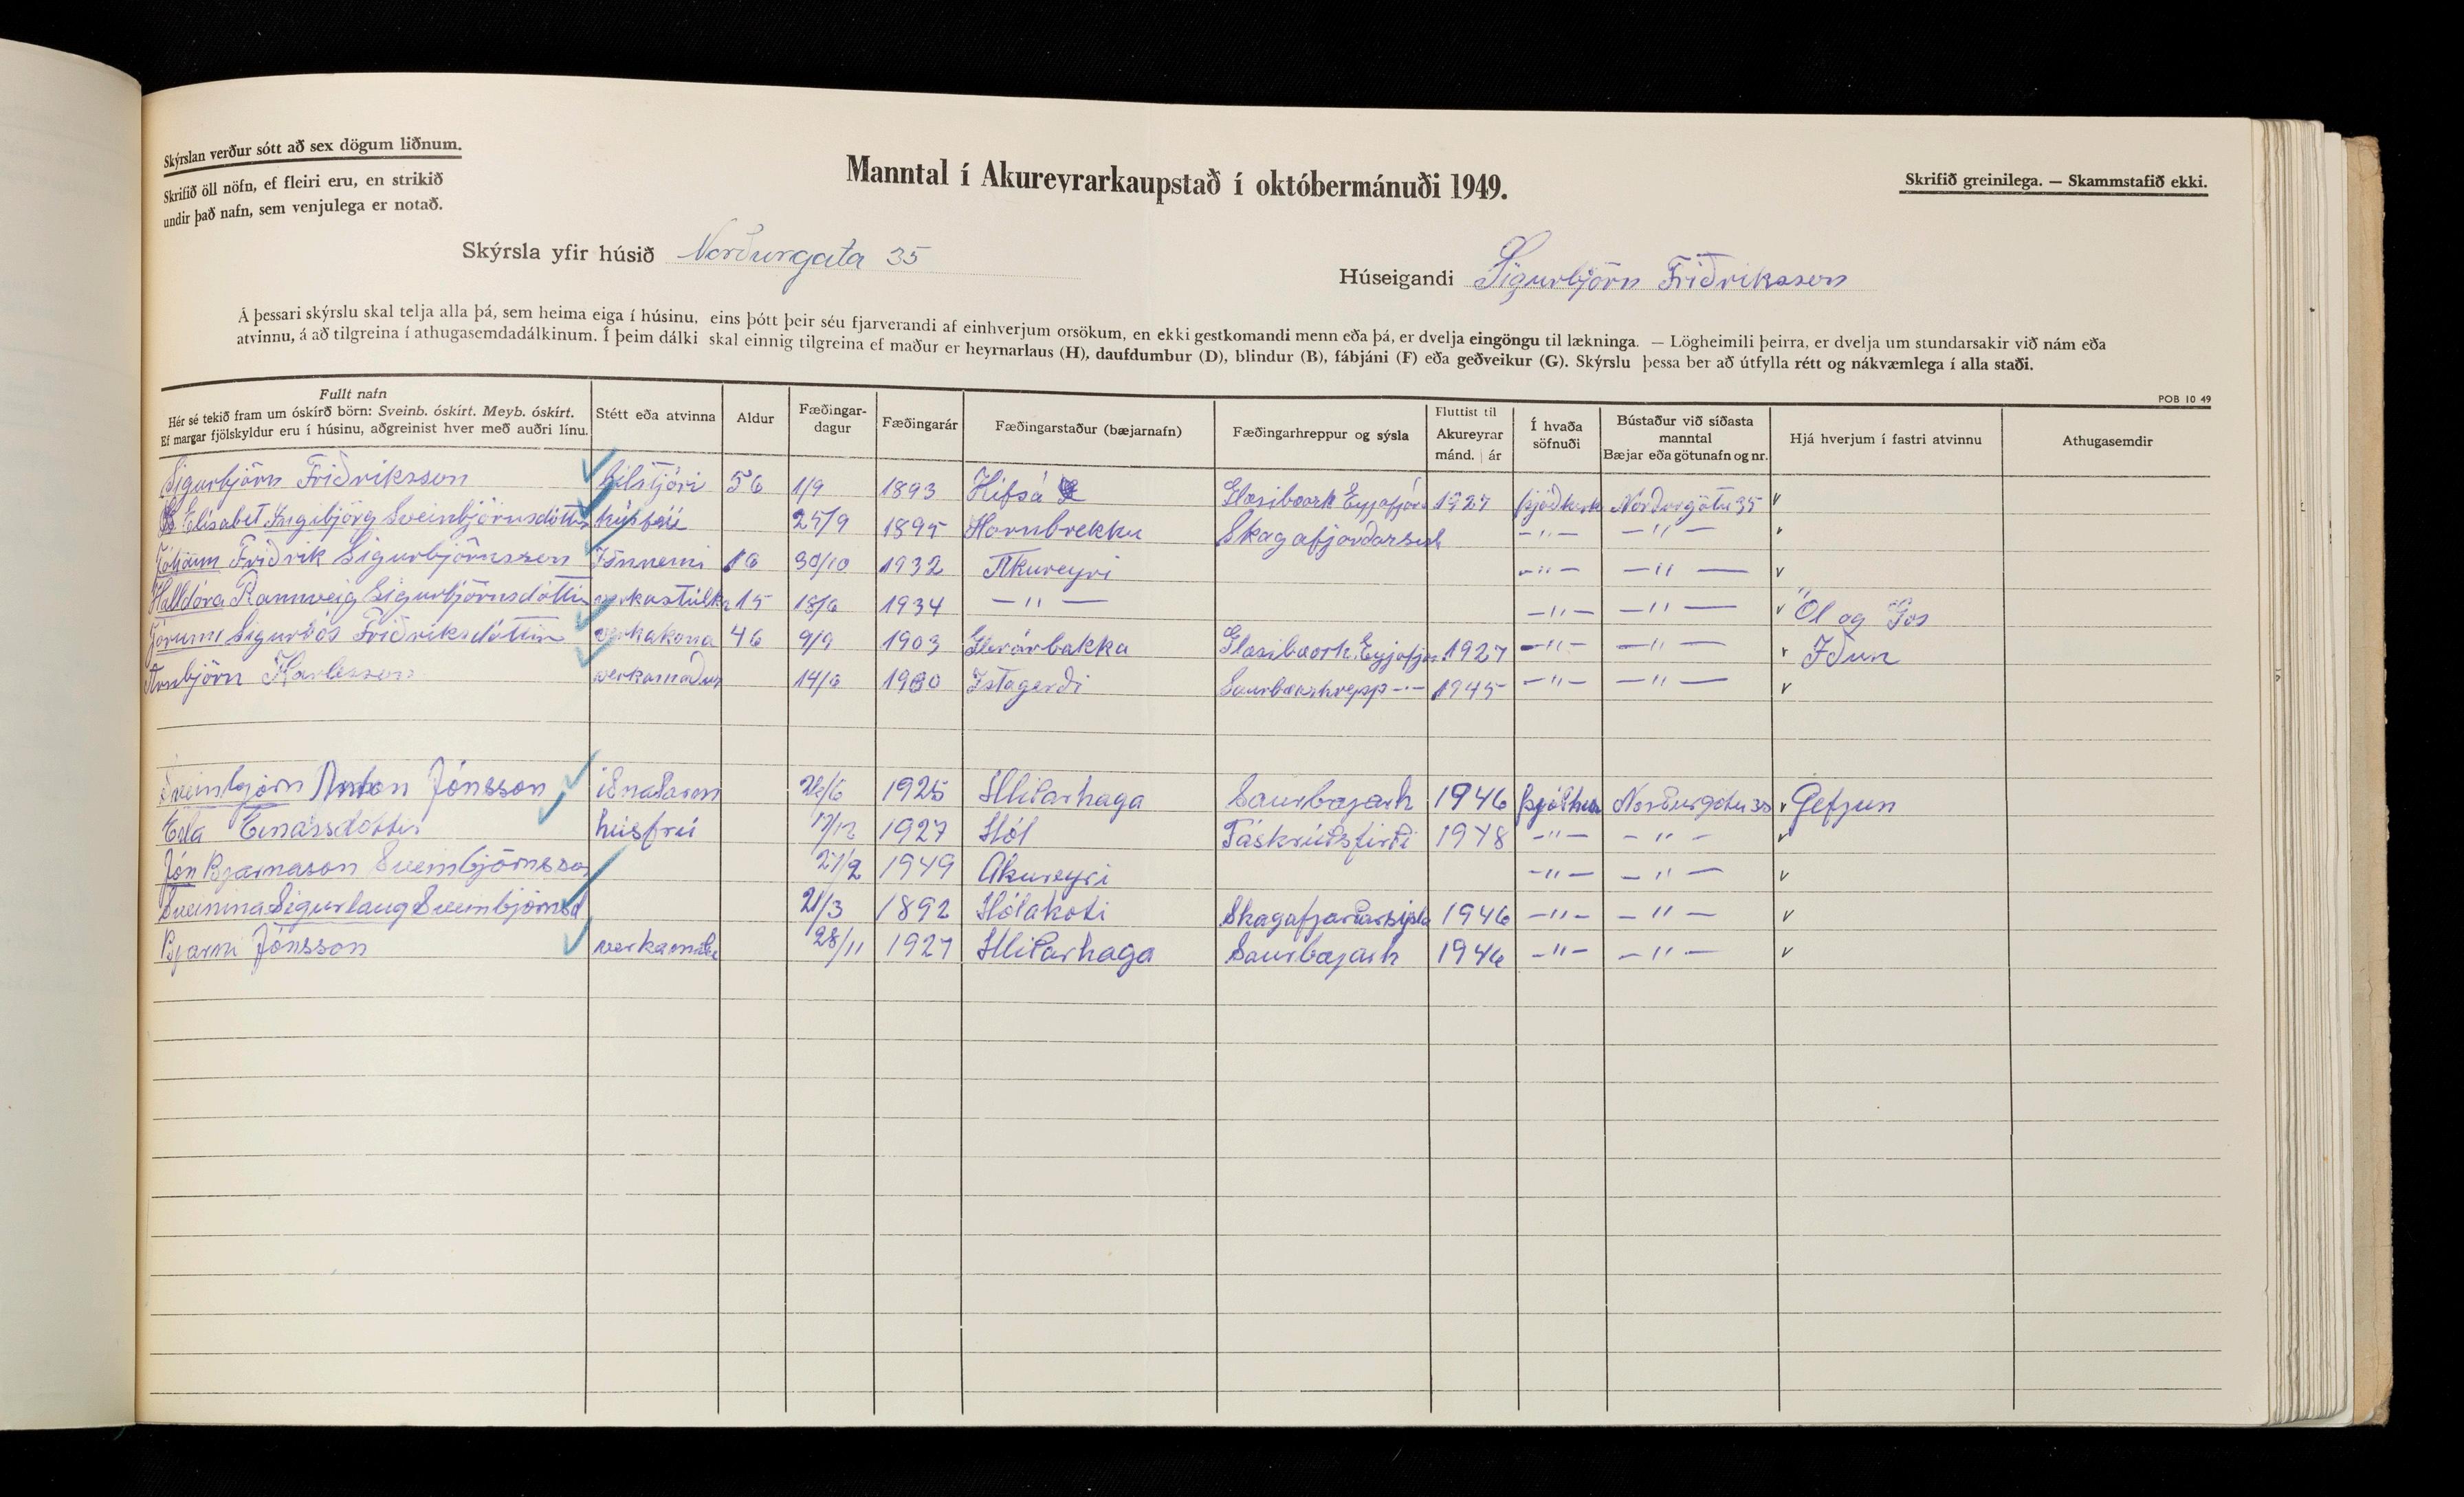 Skýrslan verður sótt að sex dögum liðnum.
Skrifið öll nöfn, ef fleiri eru, en strikið
undir það nafn, sem venjulega er notað.
Manntal í Akureyrarkaupstað í októbermánuði 1949.
Skrifið greinilega. — Skammstafið ekki.
Skýrsla yfir húsið Norðurgata 35
Húseigandi Sigurbjörn Friðriksson
Á þessari skýrslu skal telja alla þá, sem heima eiga í húsinu, eins þótt þeir séu fjarverandi af einhverjum orsökum, en ekki gestkomandi menn eða þá, er dvelja eingöngu til lækninga. — Lögheimili þeirra, er dvelja um stundarsakir við nám eða
atvinnu, á að tilgreina í athugasemdadálkinum. Í þeim dálki skal einnig tilgreina ef maður er heyrnarlaus (H), daufdumbur (D), blindur (B), fábjáni (F) eða geðveikur (G). Skýrslu þessa ber að útfylla rétt og nákvæmlega í alla staði.
POB 10 49
Fullt nafn
Hér sé tekið fram um óskírð börn: Sveinb. óskírt. Meyb. óskírt.
Ef margar fjölskyldur eru í húsinu, aðgreinist hver með auðri línu.
Stétt eða atvinna
Aldur
Fæðingar-
dagur
Fæðingarár
Fæðingarstaður (bæjarnafn)
Fæðingarhreppur og sýsla
Fluttist til
Akureyrar
mánd. | ár
Í hvaða
söfnuði
Bústaður við síðasta
manntal
Bæjar eða götunafn og nr.
Hjá hverjum í fastri atvinnu
Athugasemdir
Sigurbjörn Friðriksson bílstjóri 56 1/9 1893 Hífsá Glæsibæarh Eyjafjar 1927 Norðurgötu 35 v
Elísabet Ingibjörg Sveinbjörnsdóttir húsfrú 25/9 1895 Hornbrekku -"- -"-
Jóhann Friðrik Sigurbjörnsson Iðnnemi 16 30/10 1932 Akureyri -"- -"- v
Halldóra Rannveig Sigurbjörnsdóttir verkastúlka 15 18/6 1934 -"- -"- -"- v Öl og Gos
Jórunn Sigurbós Friðriksdóttir verkakona 46 9/9 1903 Glerárbakka Glæsibæarh. Eyjafjar 1927 -"- -"- v Iðun
Arnbjörn Karlesson verkamaður 14/6 1930 Ístagerði Saurbæarhrepp -"- 1945 -"- -"- v
Sveinbjörn Anton Jónsson 26/6 1925 Hlíðarhaga Saurbæjarh 1946 Norðurgötu 35 v Gefjun
Edda Einarsdóttir húsfrú 1927 Hól Fáskrúðsfirði 1948 -"- -"- v
Jón Bjarnason Sveinbjörnsson 27/2 1949 Akureyri -"- -"- v
Sveinina Sigurlaug Sveinbjörnsd 21/3 1892 Hólakoti Skagafjarðarsýsla 1946 -"- -"- v
Bjarni Jónsson 28/11 1927 Hlíðarhaga Saurbæjarh 1946 -"- -"- v